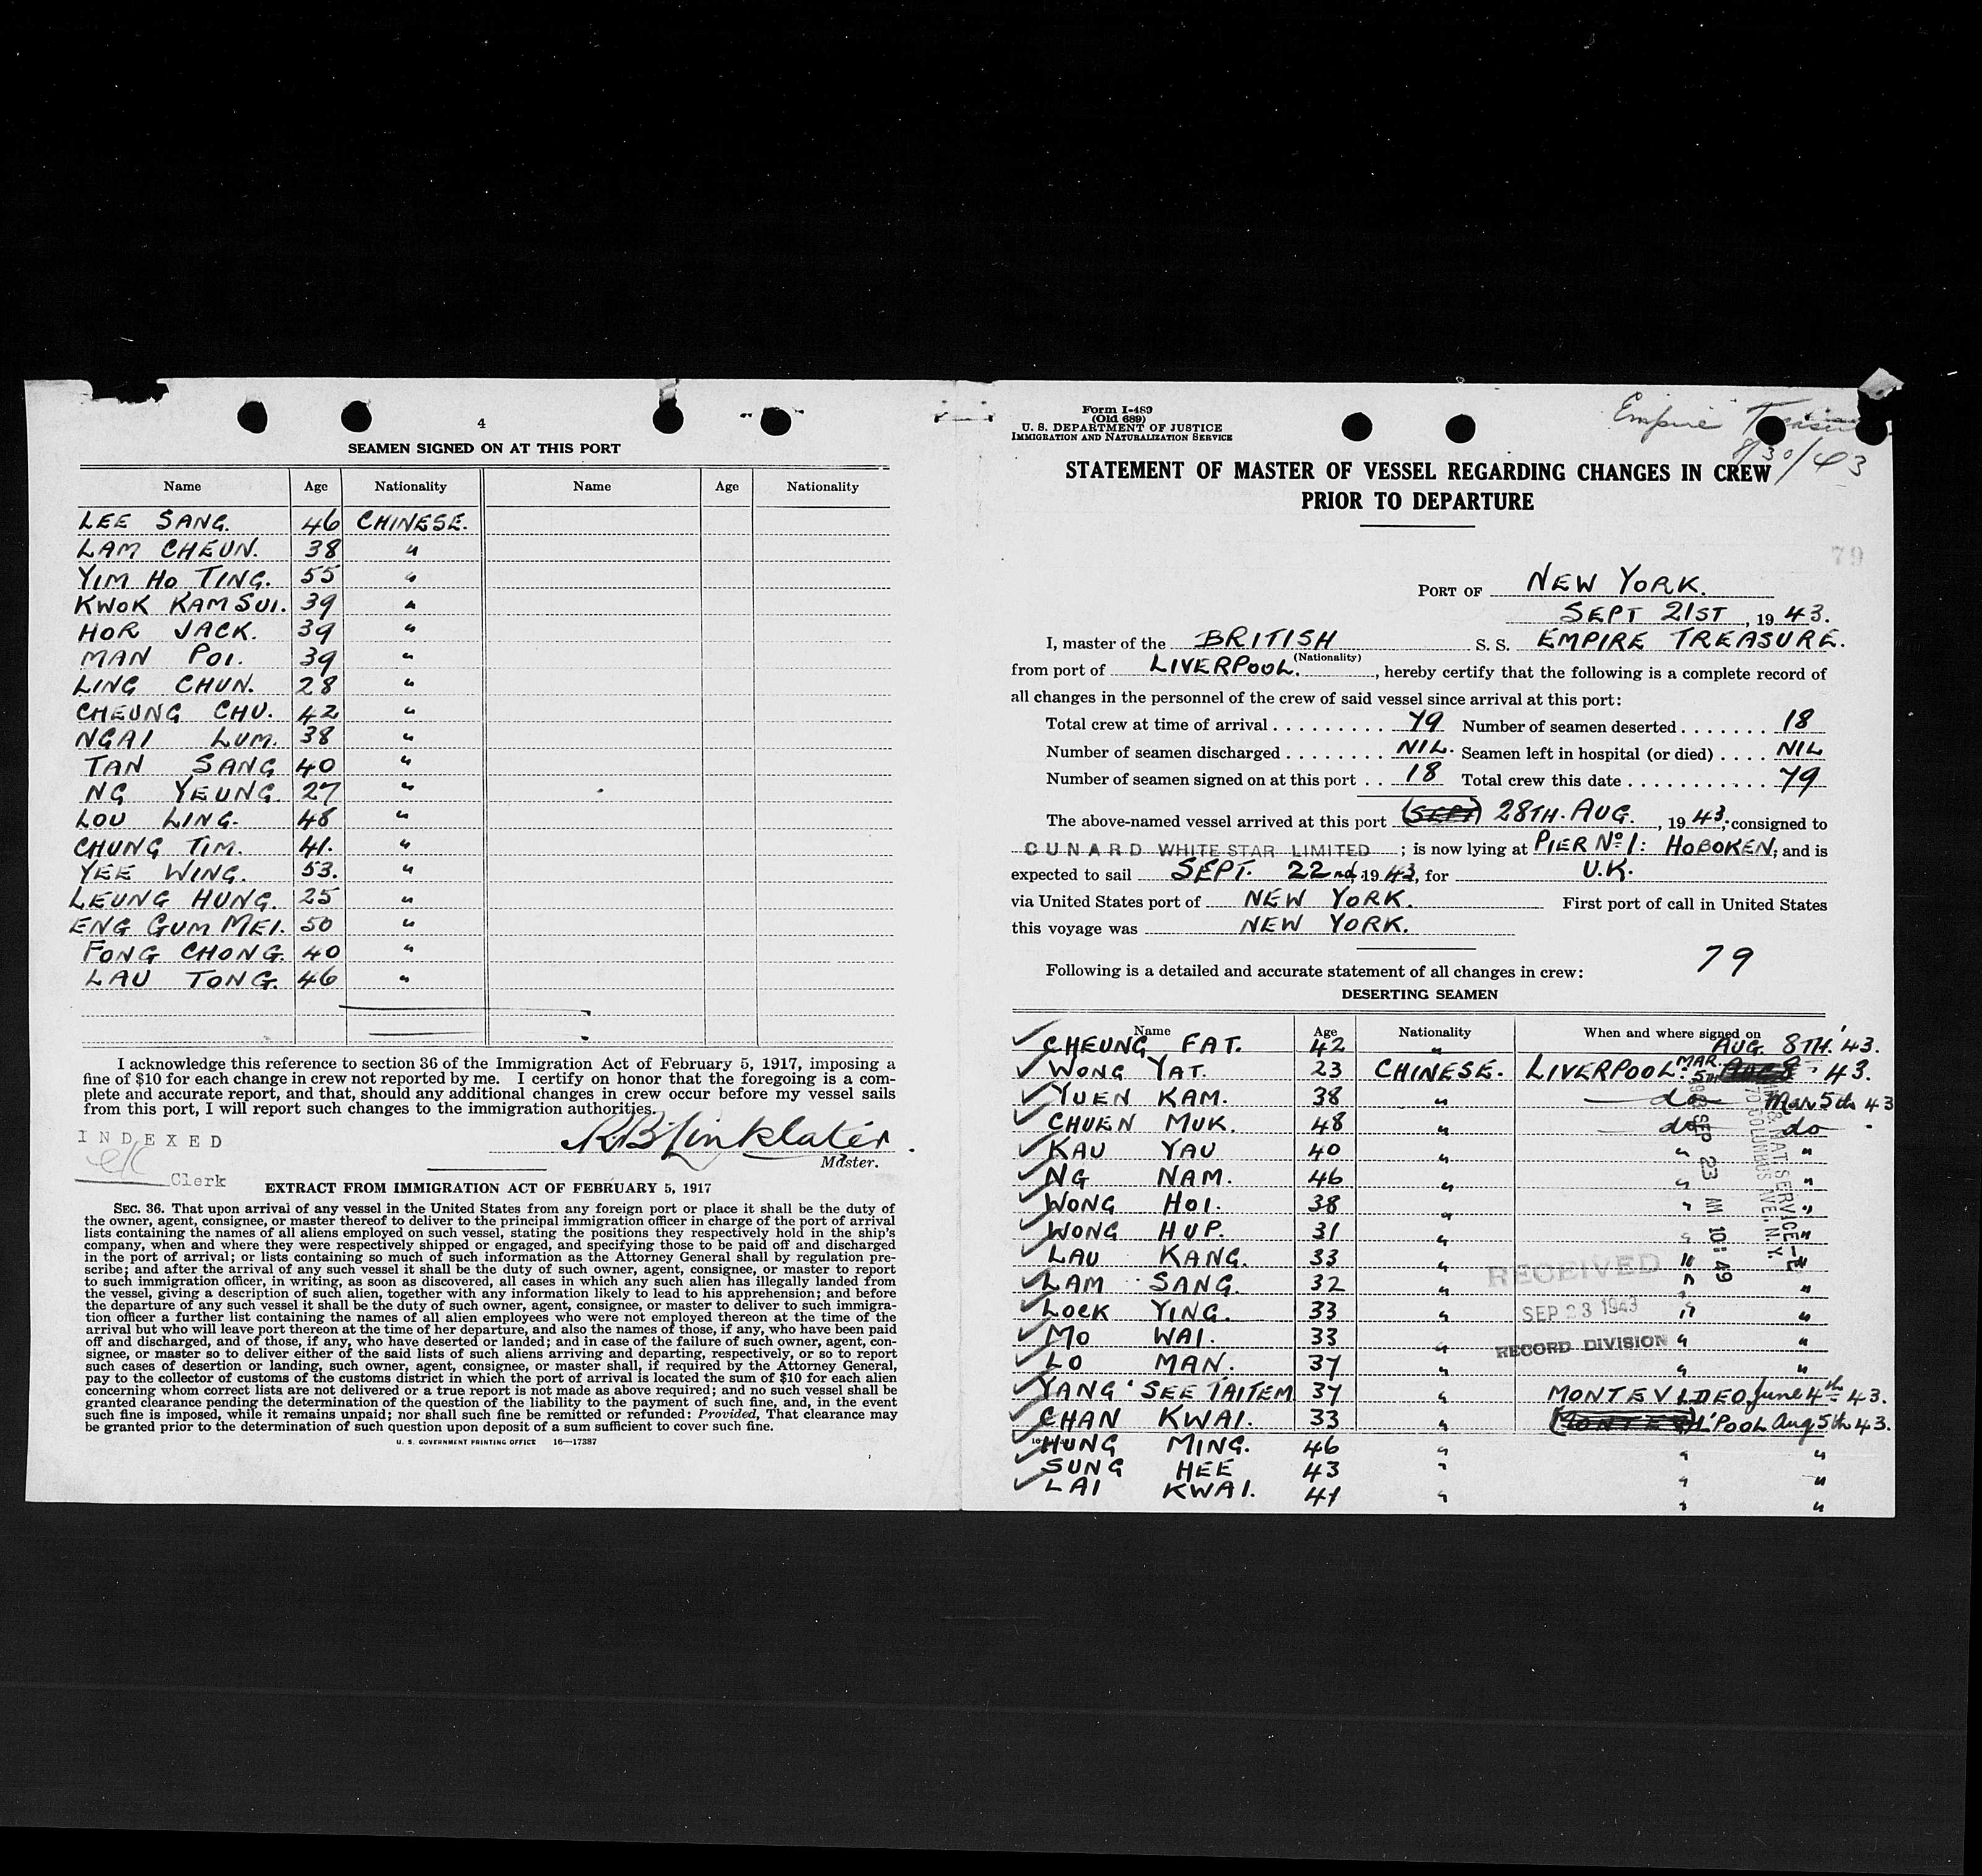 4
SEAMEN SIGNED ON AT THIS PORT
Name Age Nationality Name Age Nationality
LEE SANG. 46 CHINESE.
LAM CHEUN. 38 "
YIM HO TING. 55 "
KWOK KAM SUI. 39 "
HOR JACK. 39 "
MAN POI. 39 "
LING CHUN. 28 "
CHEUNG CHU. 42 "
NGAI LUM. 38 "
TAN SANG 40 "
NG YEUNG. 27 "
LOU LING. 48 "
CHUNG TIM. 41. "
YEE WING. 53. "
LEUNG HUNG. 25 "
ENG GUM MEI. 50 "
FONG CHONG. 40 "
LAU TONG. 46 "
I acknowledge this reference to section 36 of the Immigration Act of February 5, 1917, imposing a
fine of $10 for each change in crew not reported by me. I certify on honor that the foregoing is a com-
plete and accurate report, and that, should any additional changes in crew occur before my vessel sails
from this port, I will report such changes to the immigration authorities.
INDEXED
R B Linklater
Master.
Clerk
EXTRACT FROM IMMIGRATION ACT OF FEBRUARY 5, 1917
SEC. 36. That upon arrival of any vessel in the United States from any foreign port or place it shall be the duty of
the owner, agent, consignee, or master thereof to deliver to the principal immigration officer in charge of the port of arrival
lists containing the names of all aliens employed on such vessel, stating the positions they respectively hold in the ship's
company, when and where they were respectively shipped or engaged, and specifying those to be paid off and discharged
in the port of arrival; or lists containing so much of such information as the Attorney General shall by regulation pre-
scribe; and after the arrival of any such vessel it shall be the duty of such owner, agent, consignee, or master to report
to such immigration officer, in writing, as soon as discovered, all cases in which any such alien has illegally landed from
the vessel, giving a description of such alien, together with any information likely to lead to his apprehension; and before
the departure of any such vessel it shall be the duty of such owner, agent, consignee, or master to deliver to such immigra-
tion officer a further list containing the names of all alien employees who were not employed thereon at the time of the
arrival but who will leave port thereon at the time of her departure, and also the names of those, if any, who have been paid
off and discharged, and of those, if any, who have deserted or landed; and in case of the failure of such owner, agent, con-
signee, or master so to deliver either of the said lists of such aliens arriving and departing, respectively, or so to report
such cases of desertion or landing, such owner, agent, consignee, or master shall, if required by the Attorney General,
pay to the collector of customs of the customs district in which the port of arrival is located the sum of $10 for each alien
concerning whom correct lists are not delivered or a true report is not made as above required; and no such vessel shall be
granted clearance pending the determination of the question of the liability to the payment of such fine, and, in the event
such fine is imposed, while it remains unpaid; nor shall such fine be remitted or refunded: Provided, That clearance may
be granted prior to the determination of such question upon deposit of a sum sufficient to cover such fine.
U. S. GOVERNMENT PRINTING OFFICE 16—17387
Form I-489
(Old 689)
U. S. DEPARTMENT OF JUSTICE
IMMIGRATION AND NATURALIZATION SERVICE
Empire
8/30/43
STATEMENT OF MASTER OF VESSEL REGARDING CHANGES IN CREW
PRIOR TO DEPARTURE
79
PORT OF NEW YORK.
SEPT 21ST, 19 43.
I, master of the BRITISH S. S. EMPIRE TREASURE.
(Nationality)
from port of LIVERPOOL., hereby certify that the following is a complete record of
all changes in the personnel of the crew of said vessel since arrival at this port:
Total crew at time of arrival . . . . . . . . . . 79 Number of seamen deserted . . . . . . . . 18
Number of seamen discharged . . . . . . . . NIL. Seamen left in hospital (or died) . . . . NIL
Number of seamen signed on at this port . . 18 Total crew this date . . . . . . . . . . . 79
The above-named vessel arrived at this port (SEPT) 28TH. AUG., 19 43; consigned to
CUNARD WHITE STAR LIMITED; is now lying at PIER No 1: HOBOKEN; and is
expected to sail SEPT. 22nd, 19 43, for U.K.
via United States port of NEW YORK. First port of call in United States
this voyage was NEW YORK.
79
Following is a detailed and accurate statement of all changes in crew:
DESERTING SEAMEN
Name Age Nationality When and where signed on
CHEUNG FAT. 42 " AUG. 8TH. '43.
WONG YAT. 23 CHINESE. LIVERPOOL. MAR. 5th 43.
YUEN KAM. 38 " do Mar 5th 43
CHUEN MUK. 48 " do do
KAU YAU 40 " " "
NG NAM. 46 " " "
WONG HOI. 38 " " "
WONG HUP. 31 " " "
LAU KANG. 33 " " "
LAM SANG. 32 " " "
LOCK YING. 33 " " "
MO WAI. 33 " " "
LO MAN. 37 " " "
YANG SEE TAITEM 37 " MONTEVIDEO, June 4th 43.
CHAN KWAI. 33 " L'POOL Aug 5th 43.
HUNG MING. 46 " " "
SUNG HEE 43 " " "
LAI KWAI. 41 " " "
RECEIVED
SEP 23 1943
RECORD DIVISION
SEP 23 AM 10:49
NAT. SERVICE
COLUMBUS AVE., N.Y.